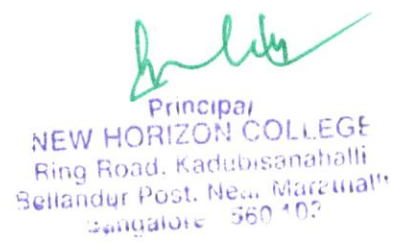 Principal
NEW HORIZON COLLEGE
Ring Road, Kadubisanahalli
Bellandur Post, Near Marathalli
Bangalore 560 103